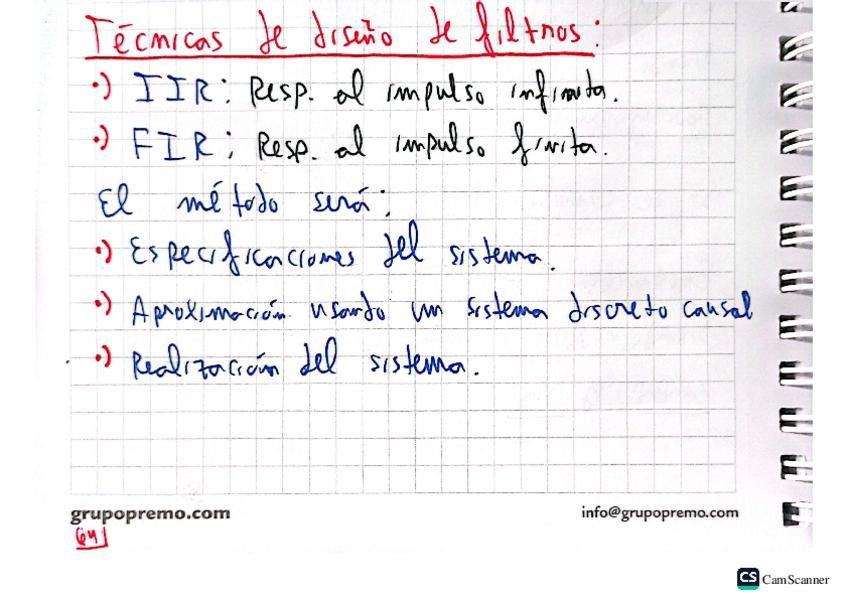 Técnicas de diseño de filtros:
·) IIR: Resp. al impulso infinita.
·) FIR: Resp. al impulso finita.
El método será:
·) Especificaciones del sistema.
·) Aproximación usando un sistema discreto causal
·) Realización del sistema.
grupopremo.com
info@grupopremo.com
64
CS CamScanner